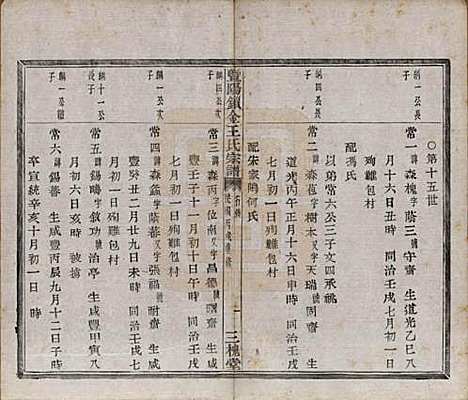 ○第十五世
綱一公長子
常一 諱森槐 字蔭三 號 生道光乙巳八
月十六日丑時 同治壬戌七月初一日
殉難包村
配馮氏
以弟常六公三子文四承祧
綱四公長子
常二 諱森 字樹本 又字天瑞 號 生
道光丙午正月十六日申時 同治壬戌
七月初一日殉難包村
配朱家隝何氏
豐陽鎮金王氏宗譜
三槐堂
綱四公次子
常三 諱森丙 字位南 又字昌德 號 生咸
豐壬子十一月初十日午時 同治壬戌
七月初一日殉難包村
綱一公次子
常四 諱森鑑 字蔭善 又字張福 號耐齋 生咸
豐癸丑二月廿九日未時 同治壬戌七
月初一日殉難包村
綱十一公長子
常五 諱錫疇 字敘功 號治亭 生咸豐甲寅八
月初六日亥時 被擄
常六 諱錫善 生咸豐丙辰九月十二日子時
卒宣統辛亥十月初一日 時